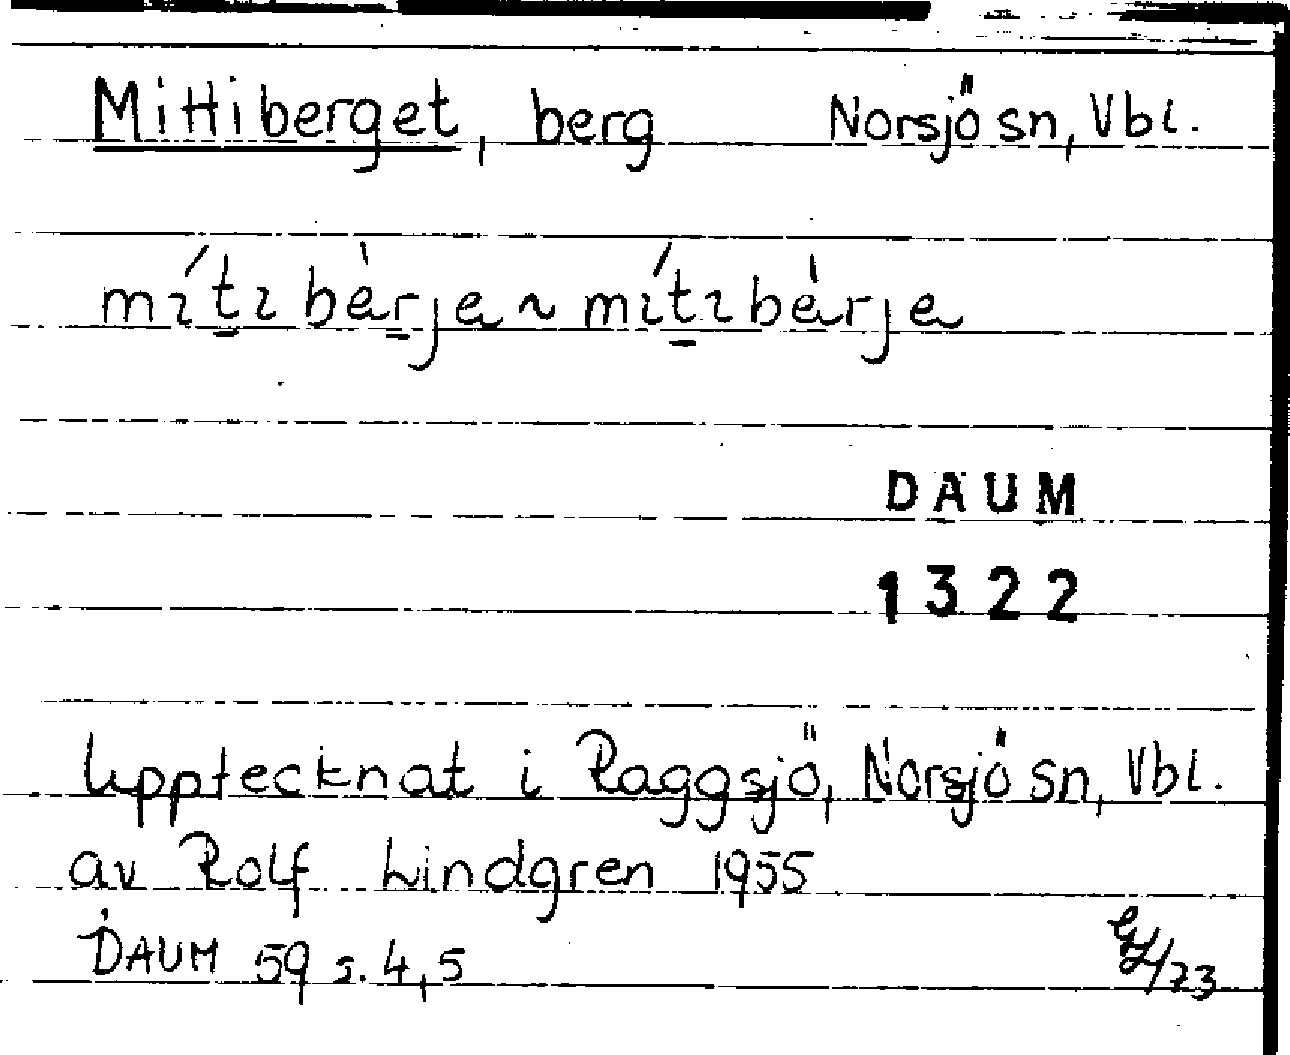 Mittiberget, berg Norsjö sn, Vbl.
mı́t̲ı bèr̲ja ~ mı́t̲ıbèrja
DAUM
1322
Upptecknat i Raggsjö, Norsjö sn, Vbl.
av Rolf Lindgren 1955
DAUM 59 s. 4,5
/73